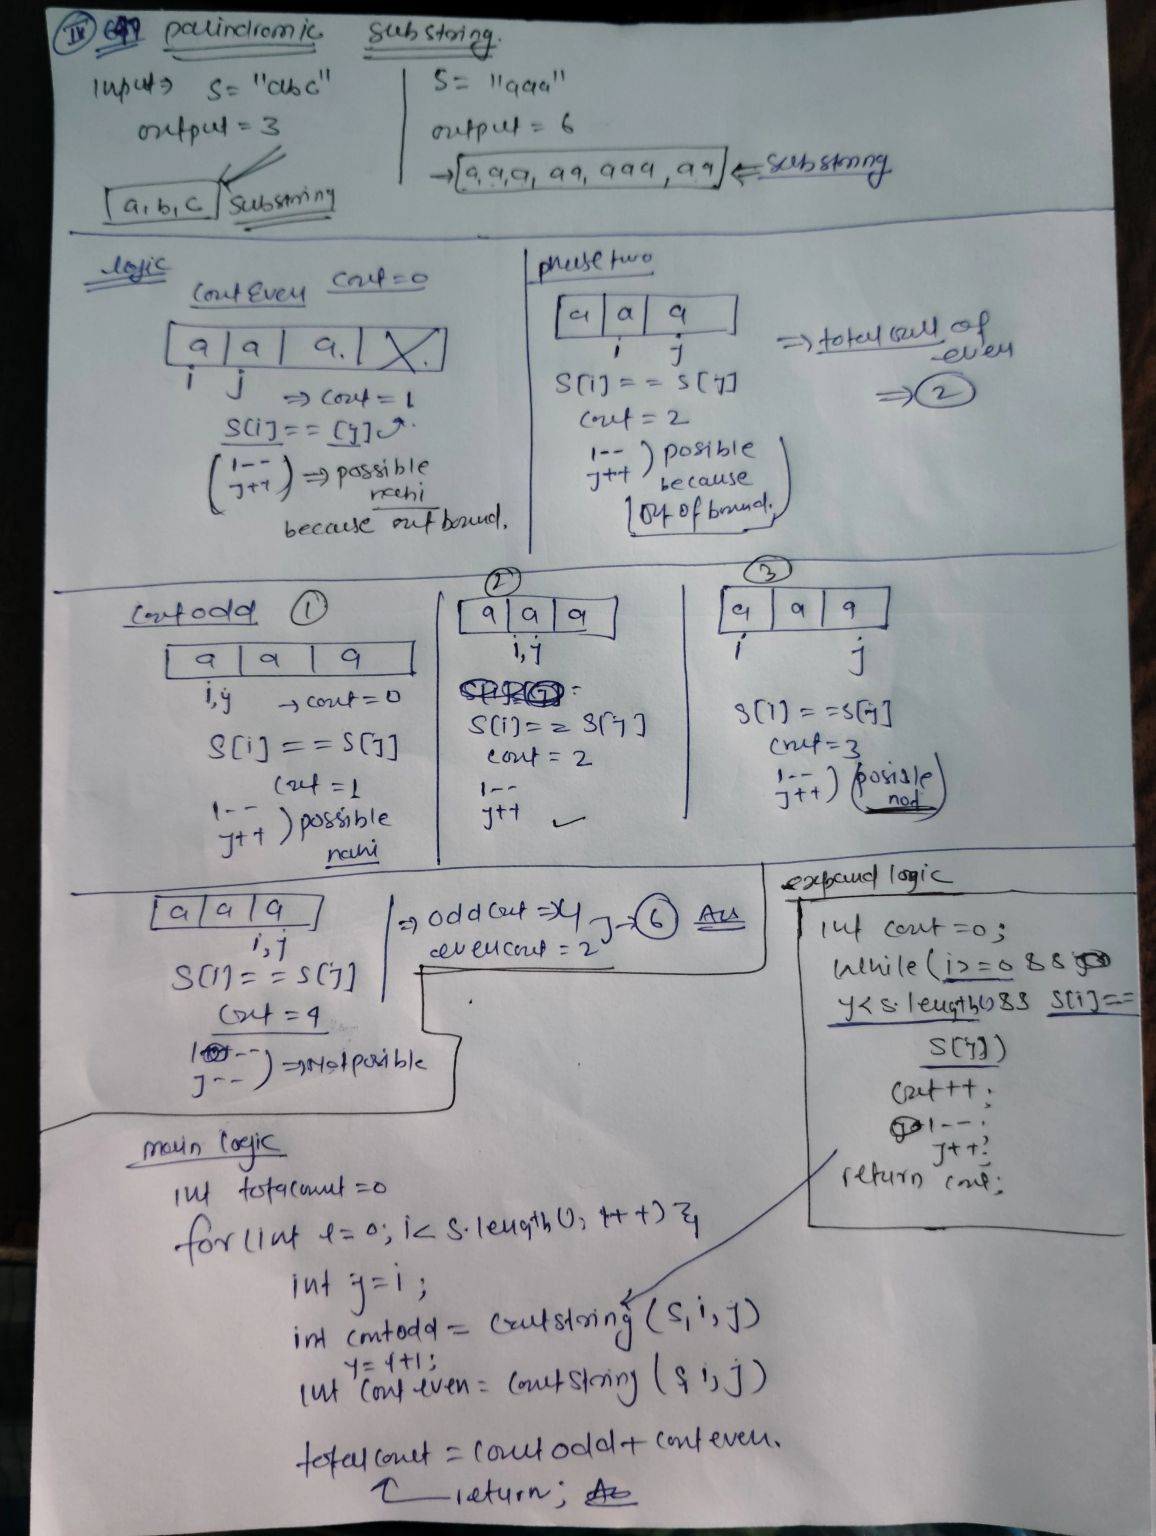 IV palindromic substring.
Input → S= "abc"
output = 3
[a,b,c] substring
S= "aaa"
output = 6
→ [a,a,a, aa, aaa, aa] ⇐ substring
logic
Cout Even Cout=0
a | a | a. | X.
i j
⇒ cout = 1
S[i]== [j]
i--
j++
⇒ possible
nahi
because out bound.
phase two
a | a | a
i j
S[i] == S[j]
Cout = 2
i--
j++
) posible
because
out of bound.
⇒ total cull of
even
⇒ 2
Cout odd 1
a | a | a
i,j → cout = 0
S[i] == S[j]
Cout = 1
i--
j++
) possible
nahi
2
a | a | a
i,j
S[i] == S[j]
cout = 2
i--
j++ ✓
3
a | a | a
i j
S[i] == S[j]
Cout = 3
i--
j++
) posisle
not
a | a | a
i,j
S[i] == S[j]
Cout = 4
i --
j--
) ⇒ Not posible
⇒ odd Cout ⇒ 4
even cout = 2
→ 6 Ans
expand logic
int cout =0;
while (i>=0 &&
j< s.length() && S[i]==
S[j])
Cout++;
i--;
j++;
return cout;
main logic
int totalcount =0
for (int i=0; i< s.length(); i++) {
int j=i;
int contodd = Coutstring (s, i, j)
j= i+1;
int Cont even = CoutString (s, i, j)
total count = Cout odd + cont even.
return; Ans